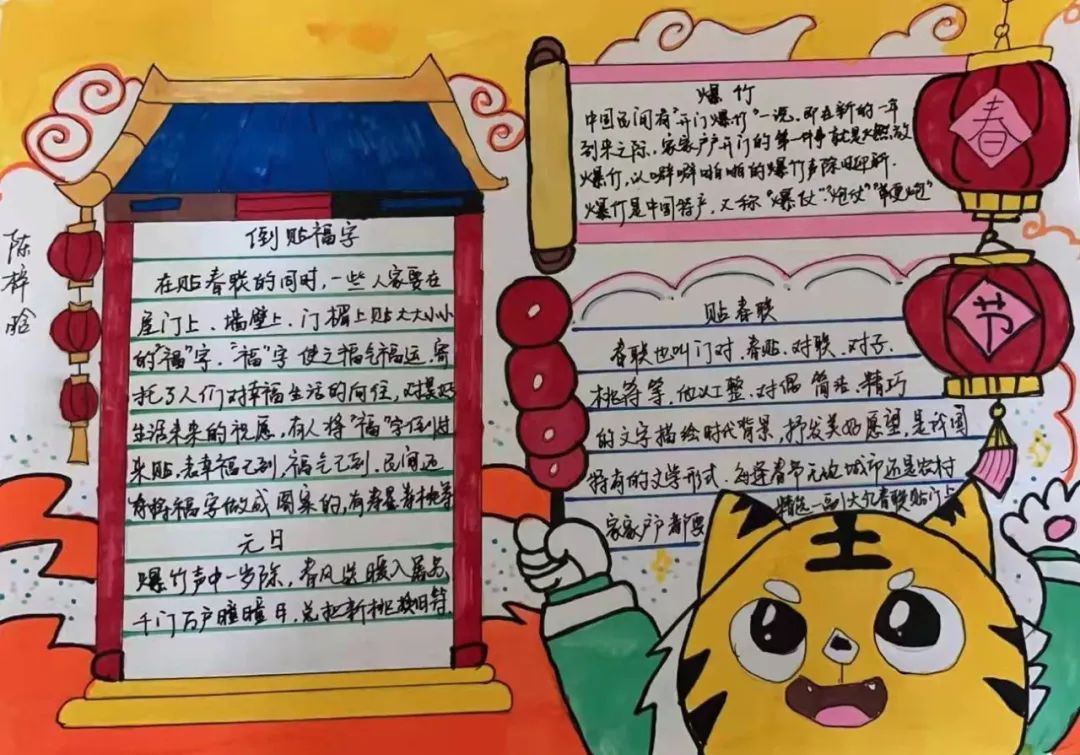 陈梓晗
倒贴福字
在贴春联的同时，一些人家要在
屋门上、墙壁上、门楣上贴大大小小
的"福"字．"福"字使之福气福运，寄
托了人们对幸福生活的向往，对美好
生活未来的祝愿，有人将"福"字倒过
来贴，表幸福已到，福气已到．民间还
有将福字做成图案的，有寿星寿桃等
元日
爆竹声中一岁除，春风送暖入屠苏
千门万户曈曈日，总把新桃换旧符．
爆竹
中国民间有"开门爆竹"一说．即在新的一年
到来之际．家家户户开门的第一件事就是燃放
爆竹，以噼噼啪啪的爆竹声除旧迎新．
爆竹是中国特产，又称"爆仗""炮仗""鞭炮"
贴春联
春联也叫门对、春贴、对联、对子、
桃符等，他以工整、对偶 简洁、精巧
的文字描绘时代背景，抒发美好愿望，是我国
特有的文学形式．每逢春节无论城市还是农村
家家户户都要精选一副大红春联贴门上
春
节
王